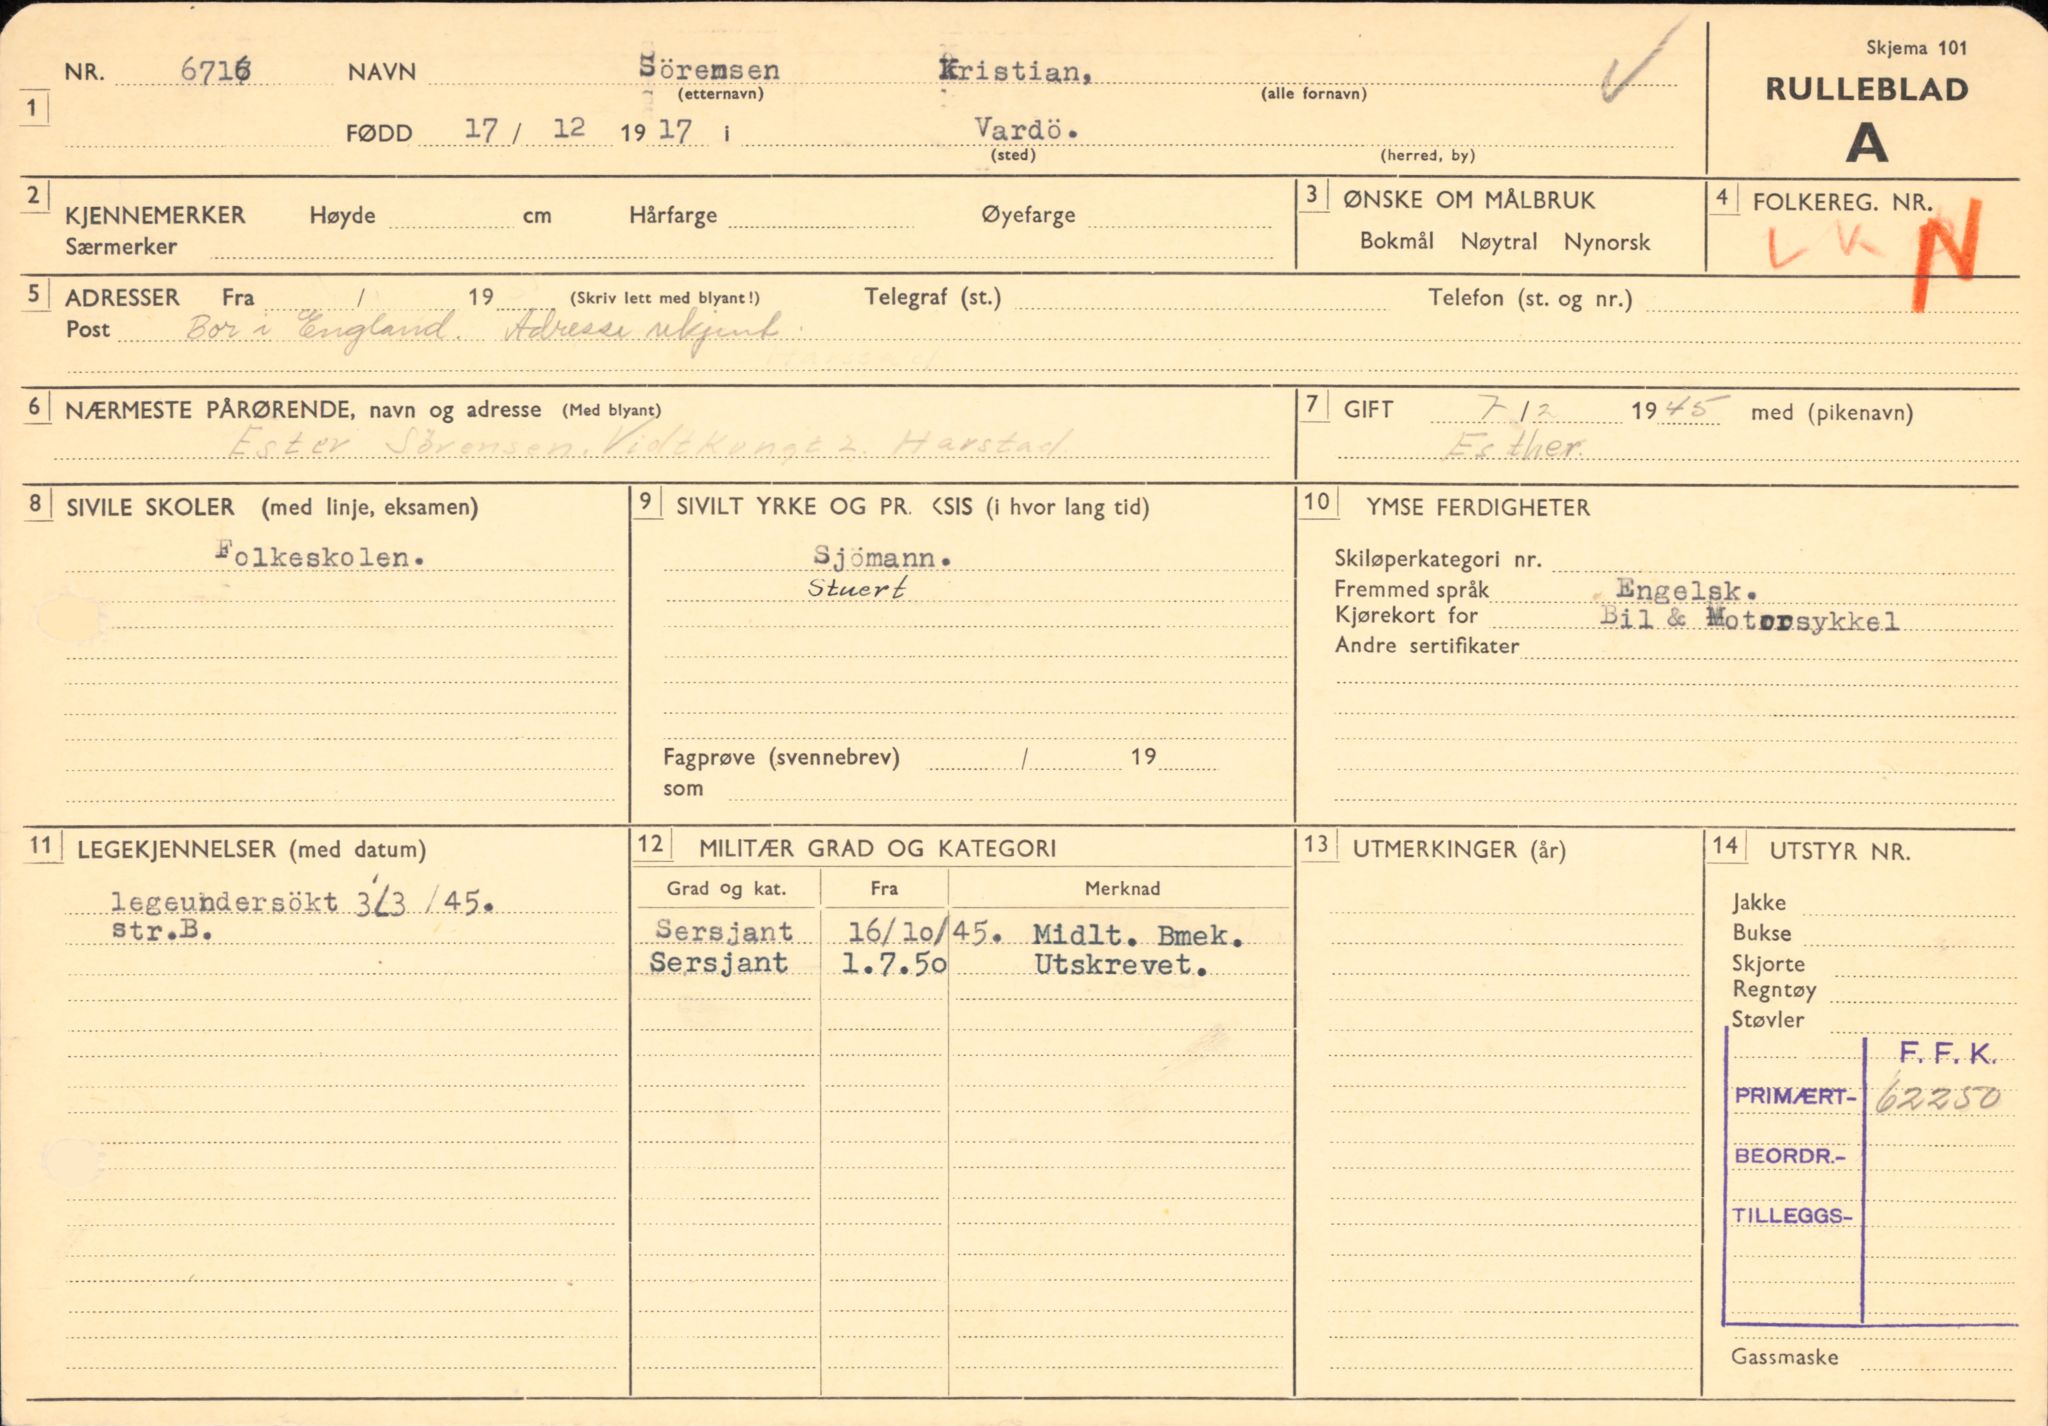 Skjema 101
RULLEBLAD
A
1 NR. 6716 NAVN Sörensen Kristian,
(etternavn) (alle fornavn)
FØDD 17 / 12 1917 i Vardö.
(sted) (herred, by)
2 KJENNEMERKER Høyde cm Hårfarge Øyefarge
Særmerker
3 ØNSKE OM MÅLBRUK
Bokmål Nøytral Nynorsk
4 FOLKEREG. NR.
L K N
5 ADRESSER Fra / 19 (Skriv lett med blyant!) Telegraf (st.) Telefon (st. og nr.)
Post Bor i England. Adresse ukjent.
Harstad
6 NÆRMESTE PÅRØRENDE, navn og adresse (Med blyant)
Ester Sörensen. Vidtkongt 2. Harstad.
7 GIFT 7/2 1945 med (pikenavn)
Esther.
8 SIVILE SKOLER (med linje, eksamen)
Folkeskolen.
9 SIVILT YRKE OG PR. KSIS (i hvor lang tid)
Sjömann.
Stuert
Fagprøve (svennebrev) / 19
som
10 YMSE FERDIGHETER
Skiløperkategori nr.
Fremmed språk Engelsk.
Kjørekort for Bil & Motorsykkel
Andre sertifikater
11 LEGEKJENNELSER (med datum)
legeundersökt 3/3 /45.
str.B.
12 MILITÆR GRAD OG KATEGORI
Grad og kat. Fra Merknad
Sersjant 16/10/45. Midlt. Bmek.
Sersjant 1.7.50 Utskrevet.
13 UTMERKINGER (år)
14 UTSTYR NR.
Jakke
Bukse
Skjorte
Regntøy
Støvler
F. F. K.
PRIMÆRT- 62250
BEORDR.-
TILLEGGS-
Gassmaske